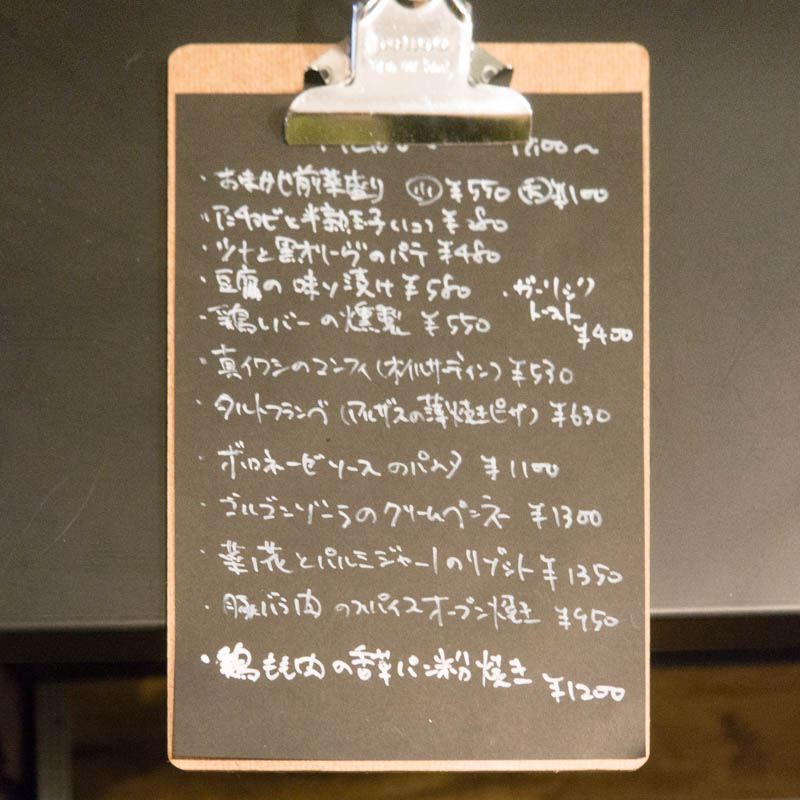 17:00〜
・おまかせ前菜盛り ㊙小 ¥550 大 ¥1100
・アンチョビと半熟玉子(1コ) ¥280
・ツナと黒オリーヴのパテ ¥480
・豆腐の味り漬け ¥580
・ガーリック
トースト
¥400
・鶏レバーの燻製 ¥550
・真イワシのコンフィ(オイルサーディン) ¥530
・タルトフランベ(アルザスの薄焼きピザ) ¥630
・ボロネーゼソースのパスタ ¥1100
・ゴルゴンゾーラのクリームペンネ ¥1300
・菜ノ花とパルミジャーノのリゾット ¥1350
・豚バラ肉のスパイスオーブン焼き ¥950
・鶏もも肉の香草パン粉焼き
¥1200